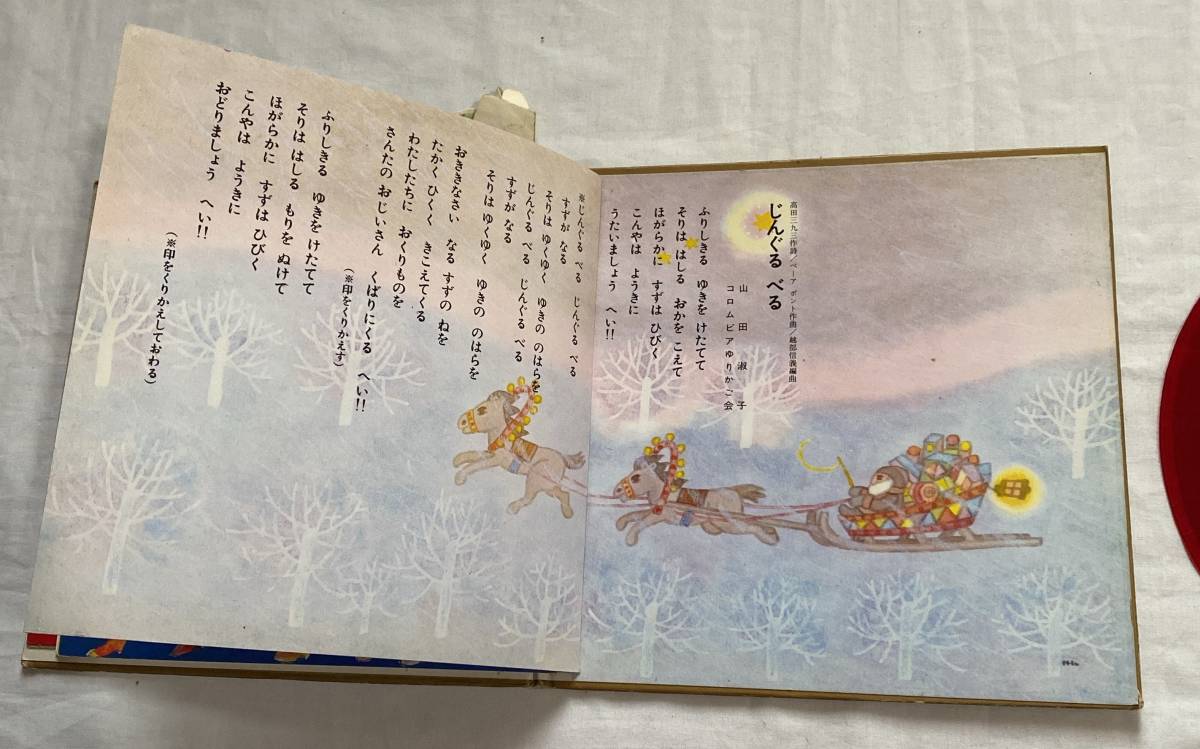 じんぐる べる
高田三九三作詩/ペーア ポント作曲/越部信義編曲
山田淑子
コロムビアゆりかご会
ふりしきる ゆきを けたてて
そりは はしる おかを こえて
ほがらかに すずは ひびく
こんやは ようきに
うたいましょう へい!!
※じんぐる べる じんぐる べる
すずが なる
そりは ゆくゆく ゆきの のはらを
じんぐる べる じんぐる べる
すずが なる
そりは ゆくゆく ゆきの のはらを
おききなさい なる すずの ねを
たかく ひくく きこえてくる
わたしたちに おくりものを
さんたの おじいさん くばりにくる へい!!
(※印をくりかえす)
ふりしきる ゆきを けたてて
そりは はしる もりを ぬけて
ほがらかに すずは ひびく
こんやは ようきに
おどりましょう へい!!
(※印をくりかえしておわる)